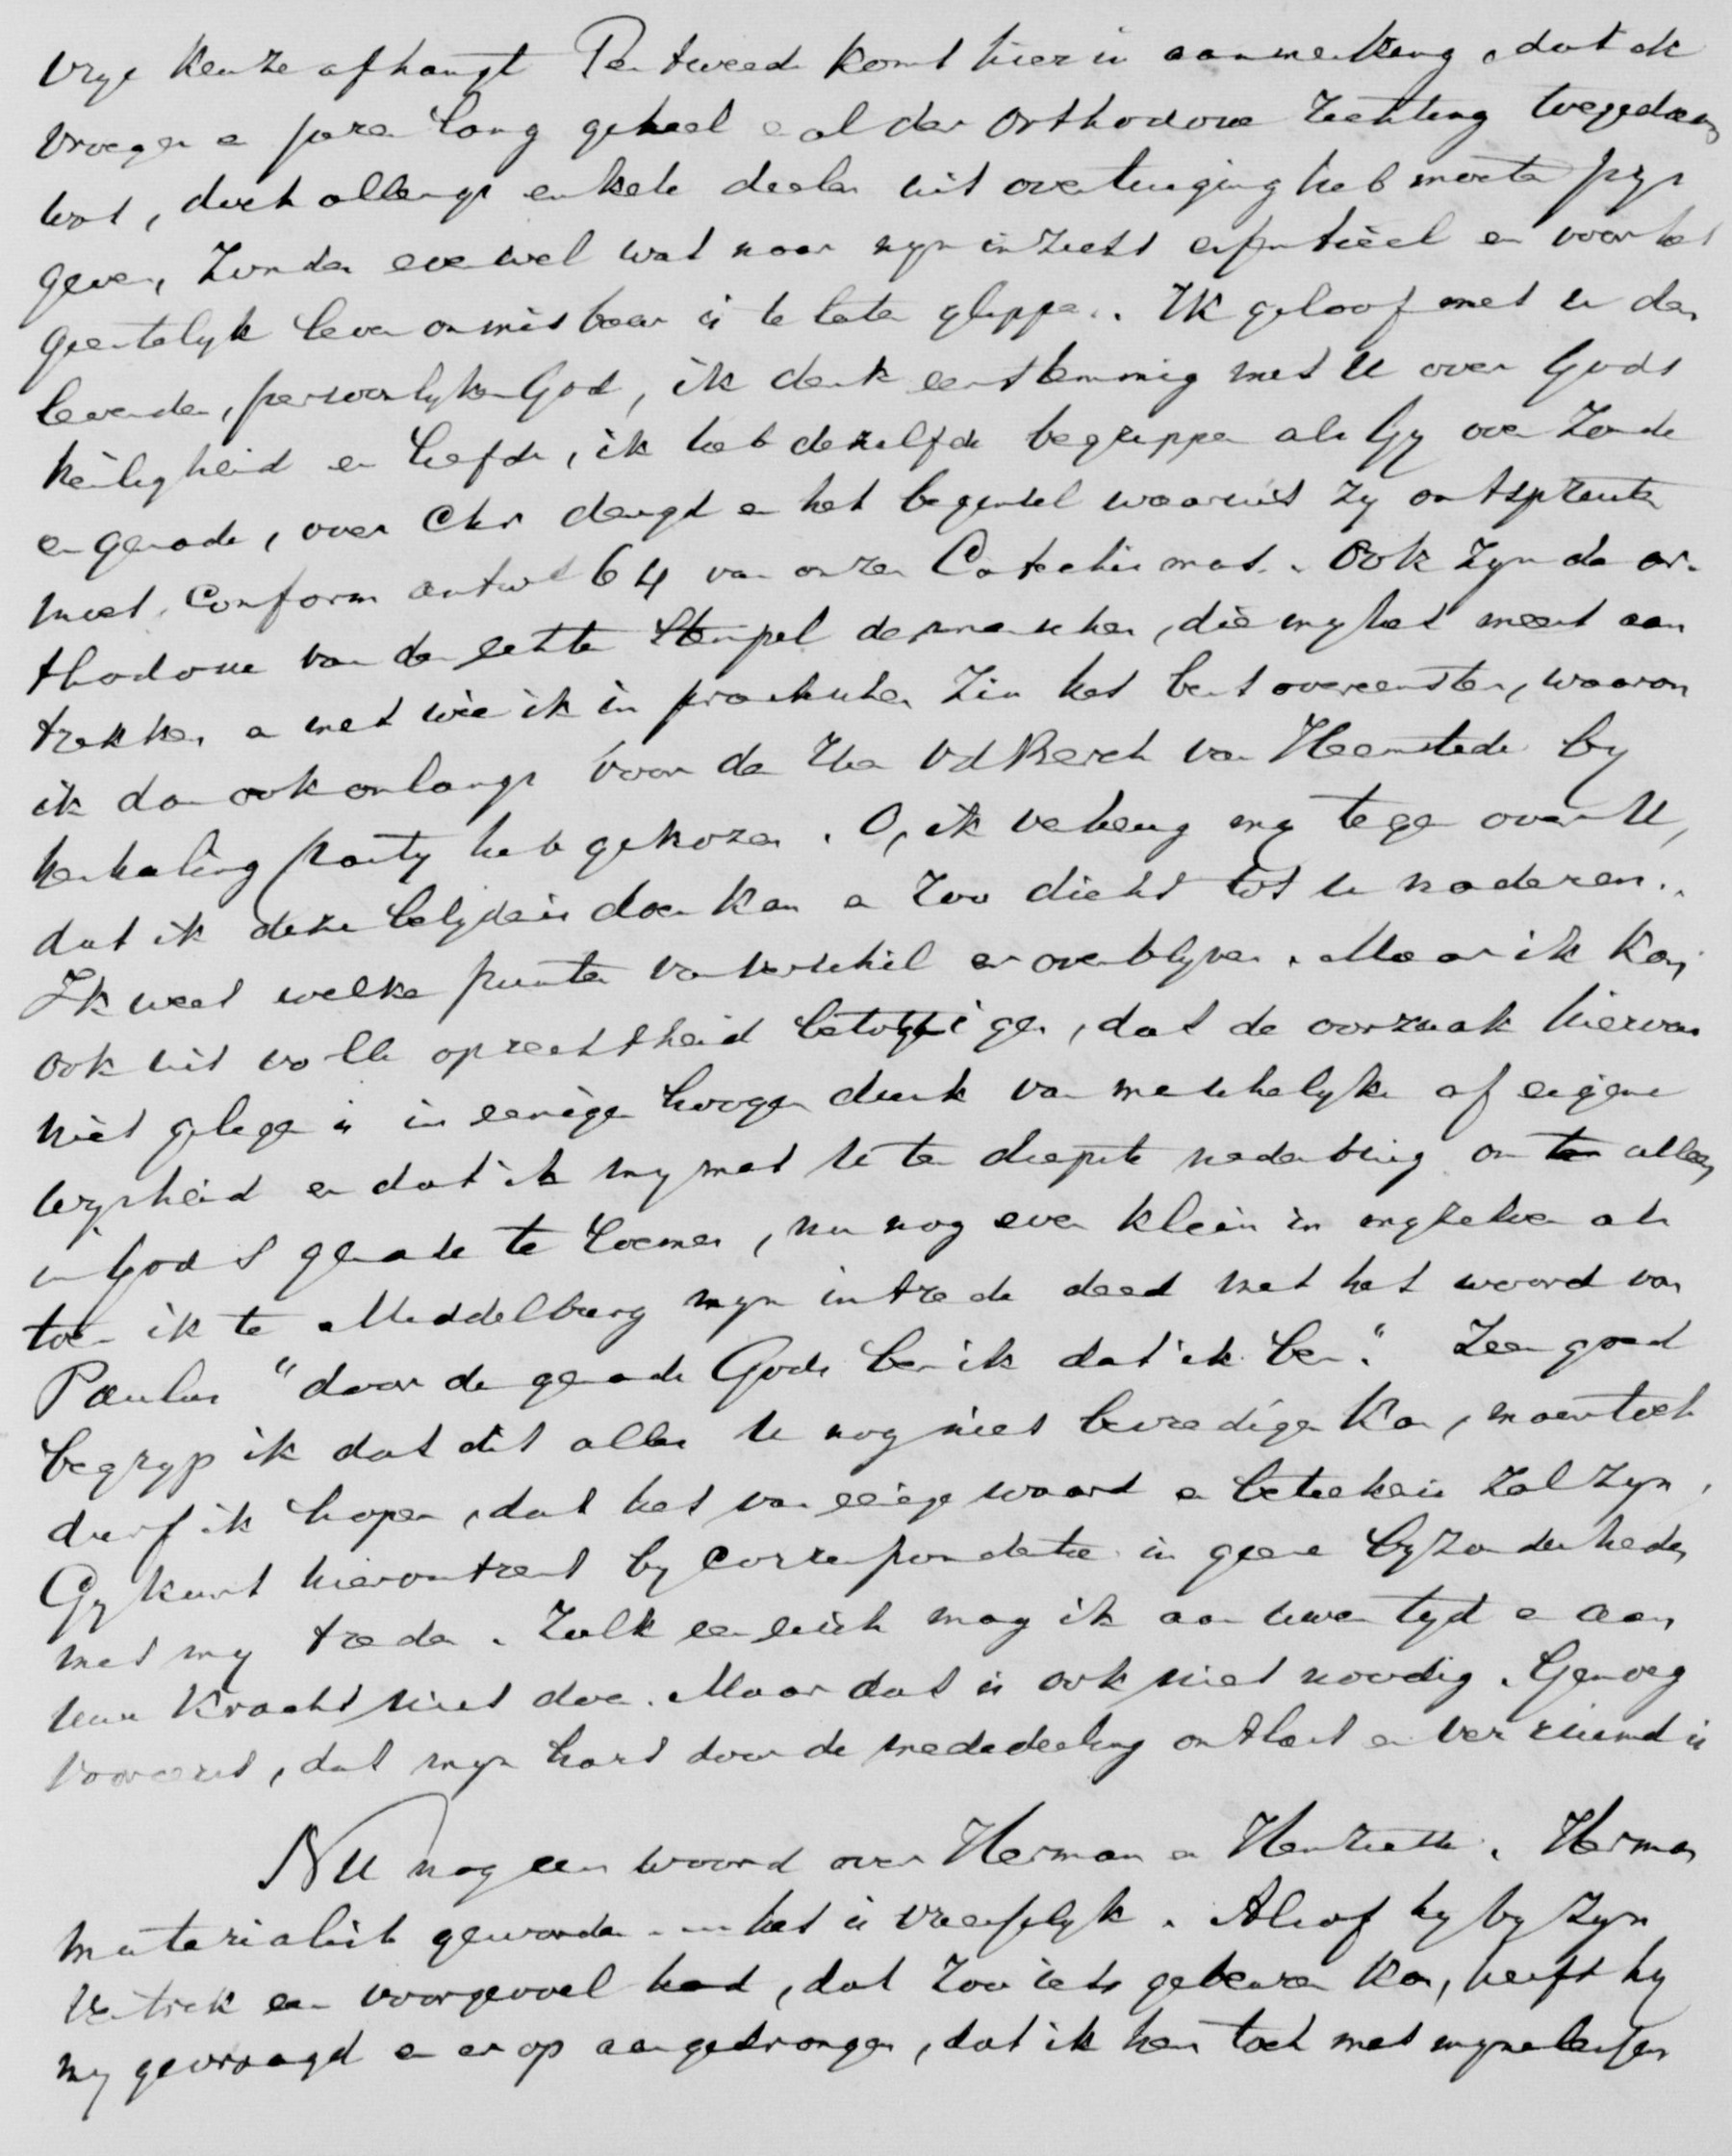 vrije keuze afhangt Ten tweede komt hier in aanmerking, dat ik
vroeger en jaren lang geheel en al der orthodoxe richting toegedaan
was, doch allengs enkele deelen uit overtuiging heb moeten prijs
geven, zonder evenwel wat naar mijn inzicht essentieel en voor het
geestelijk leven onmisbaar is te laten glippen. Ik geloof met u den
levenden, persoonlijken God, ik denk eenstemmig met U over Gods
heiligheid en liefde, ik heb dezelfde begrippen als Gij over zonde
en genade, over Chr deugd en het beginsel waaruit zij ontspruiten
moet, conform antw 64 van onzen Catechismus. Ook zijn de or-
thodoxen van den echten stempel de menschen, die mij het meest aan
trekken en met wie ik in praktischen zin het best overeenstem, waarom
ik dan ook onlangs voor den Heer vd Berch van Heemstede bij
herhaling partij heb gekozen. O, ik verheug mij tegenover U,
dat ik deze belijdenis doen kan en zoo dicht tot u naderen.
Ik weet welke punten van verschil er overblijven. Maar ik kan
ook uit volle oprechtheid betuigen, dat de oorzaak hiervan
niet gelegen is in eenigen hoogen dunk van menschelijke of eigene
wijsheid en dat ik mij met U ten diepste nederbuig om alleen
in Gods genade te roemen, nu nog even klein in mijzelven als
toen ik te Middelburg mijn intrede deed met het woord van
Paulus "door de genade Gods ben ik dat ik ben." Zeer goed
begrijp ik dat dit alles U nog niet bevredigen kan, maar toch
durf ik hopen, dat het van eenige waarde en beteekenis zal zijn.
Gij kunt hieromtrent bij correspondentie in geene bijzonderheden
met mij treden. Zulk een eisch mag ik aan uwen tijd en aan
uwe kracht niet doen. Maar dat is ook niet noodig. Genoeg
vooreerst, dat mijn hart door de mededeeling ontlast en verruimd is
Nu nog een woord over Herman en Henriette. Herman
materialist geworden - het is vreeselijk. Alsof hij bij zijn
vertrek een voorgevoel had, dat zoo iets gebeuren kon, heeft hij
mij gevraagd en er op aangedrongen, dat ik hem toch met mijne